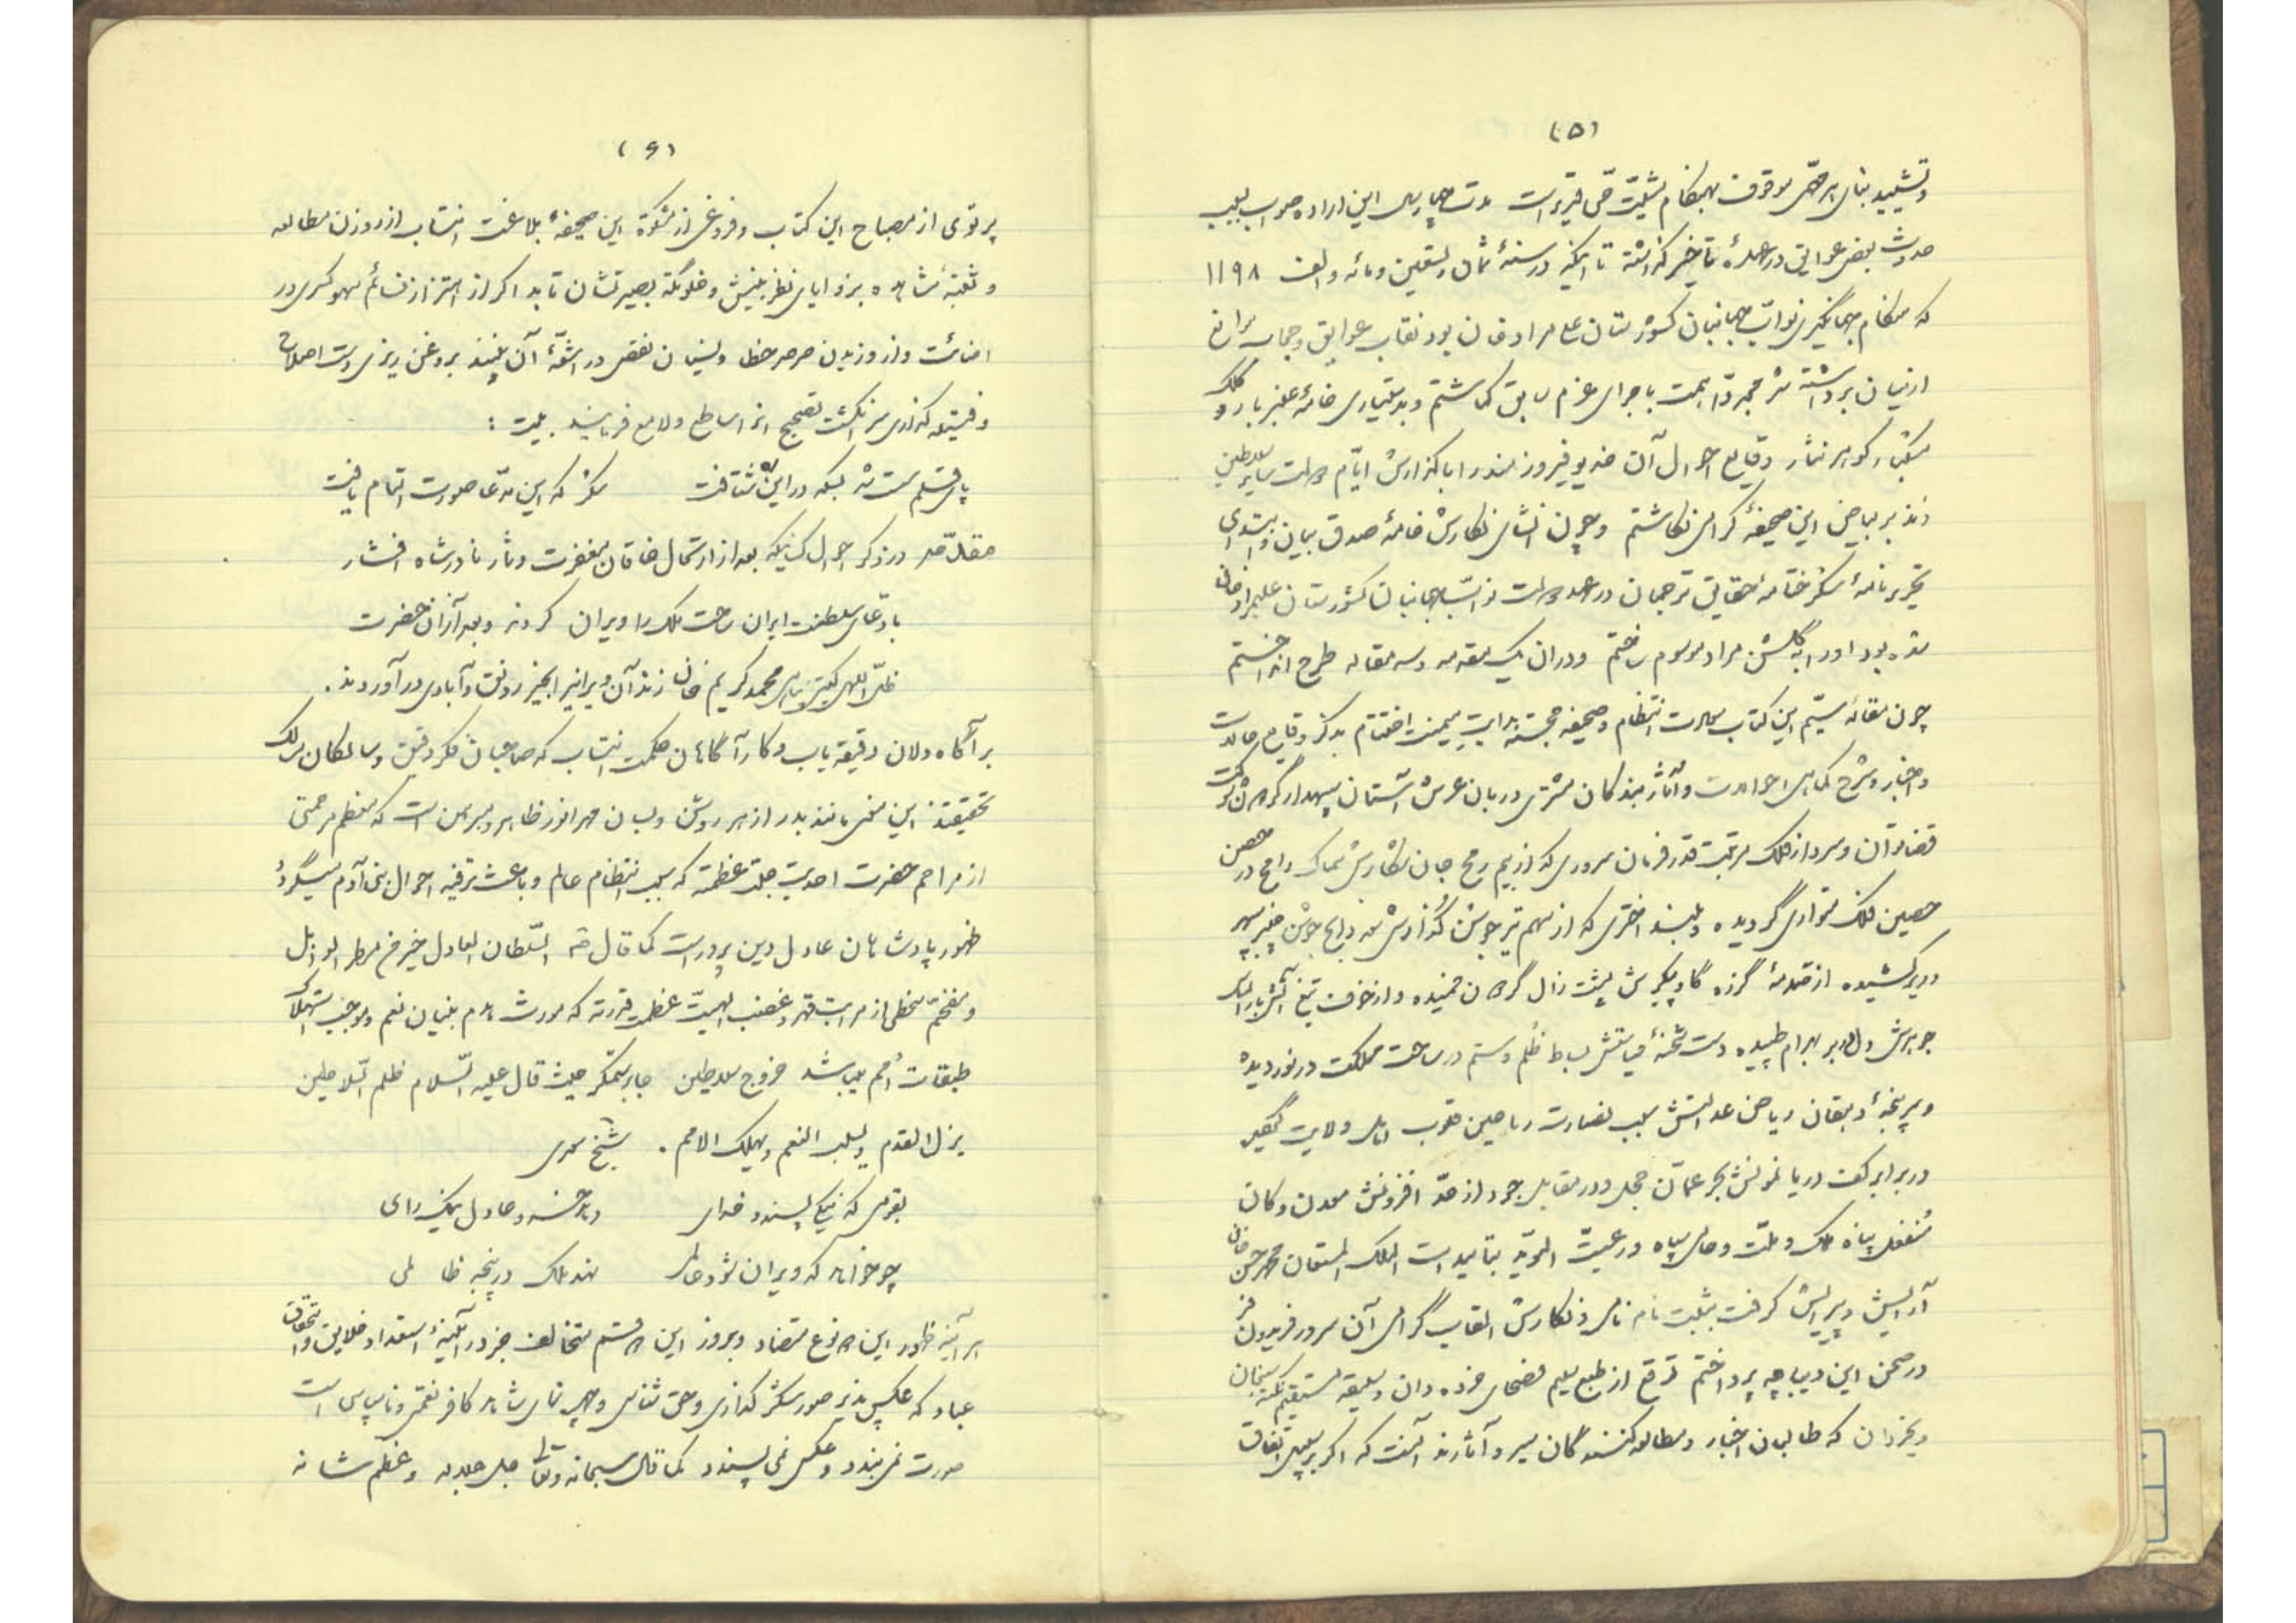 (۵)
و تشیید بنای هر مقصّر موقوف بهنگام مشیّت حّی قدیر است مدت چهار سال این اراده صواب بسبب
حدوث بعضی عوایق در عهدهٔ تأخیر گذشته تا اینکه در سنهٔ ثمان و تسعین و مائه و الف ۱۱۹۸
که هنگام جهانگیری نوّاب جهانبان کشورستان علی مراد خان بود نقاب عوایق و حجاب موانع
از میان برداشته شد مجدداً همت باجرای عزم سابق گماشتم و بدستیاری خامهٔ عنبر بار و کلک
مشکبار گوهر نثار وقایع احوال آن خدیو فیروزمند را با گذارش ایّام دولت سایر سلاطین
زند بر بیاض این صحیفهٔ گرامی نگاشتم و چون انشای نگارش خامهٔ صدق بیان و ابتدای
تحریر نامهٔ مشکین ختامهٔ حقایق ترجمان در عهد دولت نوّاب جهانبان کشورستان علیمراد خان
شده بود او را بگلشن مراد موسوم ساختم و در آن یک مقدمه و سه مقاله طرح انداختم
چون مقالهٔ سیّم این کتاب سعادت انتظام و صحیفه خجسته بدایت میمنت اختتام بذکر وقایع حالات
و اخبار و شرح کماهی احوالات و مآثر بندگان مشتری دربان عرش آستان سپهدار گردون شوکت
قضا توان و سردار فلک مرتبت قدر فرمان سروری که از بیم رمح جان شکارش سماک رامح در حصن
حصین فلک متواری گردیده و بلند اختری که از سهم تیر جوشن گذارش سعد ذابح جوشن سپهر
در بر کشیده از صدمهٔ گرزه گاو پیکرش پشت زال گردون خمیده و از خوف تیغ آتشبار الماس
جوهرش دل در بر بهرام طپیده دست شحنهٔ سیاستش بساط ظلم و ستم در ساحت مملکت در نوردیده
و سر پنجهٔ دهقان ریاض عدالتش سبب نضارت ریاحین قلوب اهل ولایت گردید
در برابر کف دریا نوالش بحر عمّان خجل و در مقابل جود از حدّ افزونش معدن و کان
منفعل پناه ملک و ملّت و حامی سپاه و رعیّت المؤیّد بتأییدات الملک المستعان محمد حسن خان
آرایش و پیرایش گرفت بثبت نام نامی و نگارش القاب گرامی آن سرور فریدون فر
در صحن این دیباچه پرداختم توقع از طبع سلیم فصحای خرده دان و سلیقه مستقیم نکته سنجان
و بخردان که طالبان اخبار و مطالعه کنندگان سیر و آثارند آنست که اگر بر سبیل اتفاق
(۶)
پرتوی از مصباح این کتاب و فروغی از مشکوة این صحیفهٔ بلاغت انتساب از روزن مطالعه
و ثقبهٔ مشاهده بزوایای نظر بینش و خلوتگه بصیرتشان تابد اگر از اهتزاز نسائم سهو کسری در
اضائت و از وزیدن صرصر خطا و نسیان نقصی در اشعّهٔ آن بینند بروغن ریزی دست اصلاح
و فتیله گذاری سر انگشت تصحیح آنرا ساطع و لامع فرمایند . بیت :
پای قلم سست شد بسکه در این ره شتافت شکر که این مدّعا صورت اتمام یافت
مقدّمه در ذکر احوال کسانیکه بعد از ارتحال خاقان مغفرت دثار نادرشاه افشار
با دعای سلطنت ایران ساحت ملک را ویران کردند و بعد از آن حضرت
ظلّ اللهی گیتی پناهی محمد کریم خان زند آن ویرانیرا بحیز رونق و آبادی در آوردند .
بر آگاه دلان دقیقه یاب و کار آگاهان حکمت انتساب که صاحبان فکر دقیق و سالکان مسلک
تحقیقند این معنی مانند بدر از هر روشن و بسان مهر انور ظاهر و مبرهن است که معظم مرحمتی
از مراحم حضرت احدیت جلّت عظمته که سبب انتظام عالم و باعث ترفیه احوال بنی آدم میگردد
ظهور پادشاهان عادل دین پرور است کما قال السّلطان العادل خیر من مطر الوابل
و مفخّم سخطی از مراتب قهر و غضب الهیّت عظمت قدرته که مورث هدم بنیان نعم و موجب استهلاک
طبقات اُمم میباشد خروج سلاطین جابر ستمگر حیث قال علیه السّلام ظلم السّلاطین
یزل القدم و یسلب النعم و یهلک الامم . شیخ سعدی
بقومی که نیکی پسندد خدای دهد خسرو عادل نیک رای
چو خواهد که ویران شود عالمی نهد ملک در پنجه ظالمی
هر آینه ظهور این دو نوع متضاد و بروز این دو قسم متخالف جز در آئینهٔ استعداد خلایق و استحقاق
عباد که عکس پذیر صور شکر گذاری و حق شناسی و چهره نمای شاهد کافر نعمتی و ناسپاسی است
صورت نمی بندد و عکس نمی پسندد کما قال سبحانه و تعالی جل جلاله و عظم شانه